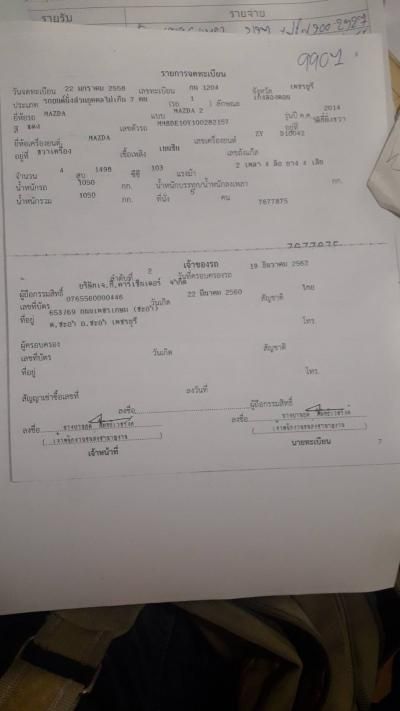 รายรับ รายจ่าย
9907
รายการจดทะเบียน
วันจดทะเบียน 22 มกราคม 2558 เลขทะเบียน กน 1204 จังหวัด เพชรบุรี
ประเภท รถยนต์นั่งส่วนบุคคลไม่เกิน 7 คน (รย. 1 ) ลักษณะ เก๋งสองตอน
ยี่ห้อรถ MAZDA แบบ MAZDA 2 รุ่นปี ค.ศ. 2014
สี แดง เลขตัวรถ MM8DE10Y100282157 อยู่ที่
ยี่ห้อเครื่องยนต์ MAZDA เลขเครื่องยนต์ ZY
อยู่ที่ ขวาเครื่อง เชื้อเพลิง เบนซิน เลขถังแก๊ส
จำนวน 4 สูบ 1498 ซีซี 103 แรงม้า 2 เพลา 4 ล้อ ยาง 4 เส้น
น้ำหนักรถ 1050 กก. น้ำหนักบรรทุก/น้ำหนักลงเพลา กก.
น้ำหนักรวม 1050 กก. ที่นั่ง 5 คน 7677875
7677875
เจ้าของรถ
ลำดับที่ 2 วันที่ครอบครองรถ 19 ธันวาคม 2562
ผู้ถือกรรมสิทธิ์
เลขที่บัตร 0765560000446 วันเกิด 22 มีนาคม 2560 สัญชาติ ไทย
ที่อยู่ 653/69 ถนนเพชรเกษม (ชะอำ)
ต.ชะอำ อ.ชะอำ เพชรบุรี โทร.
ผู้ครอบครอง
เลขที่บัตร วันเกิด สัญชาติ
ที่อยู่ โทร.
สัญญาเช่าซื้อเลขที่ ลงวันที่
ลงชื่อ ผู้ถือกรรมสิทธิ์
ลงชื่อ ลงชื่อ
เจ้าหน้าที่ นายทะเบียน
7